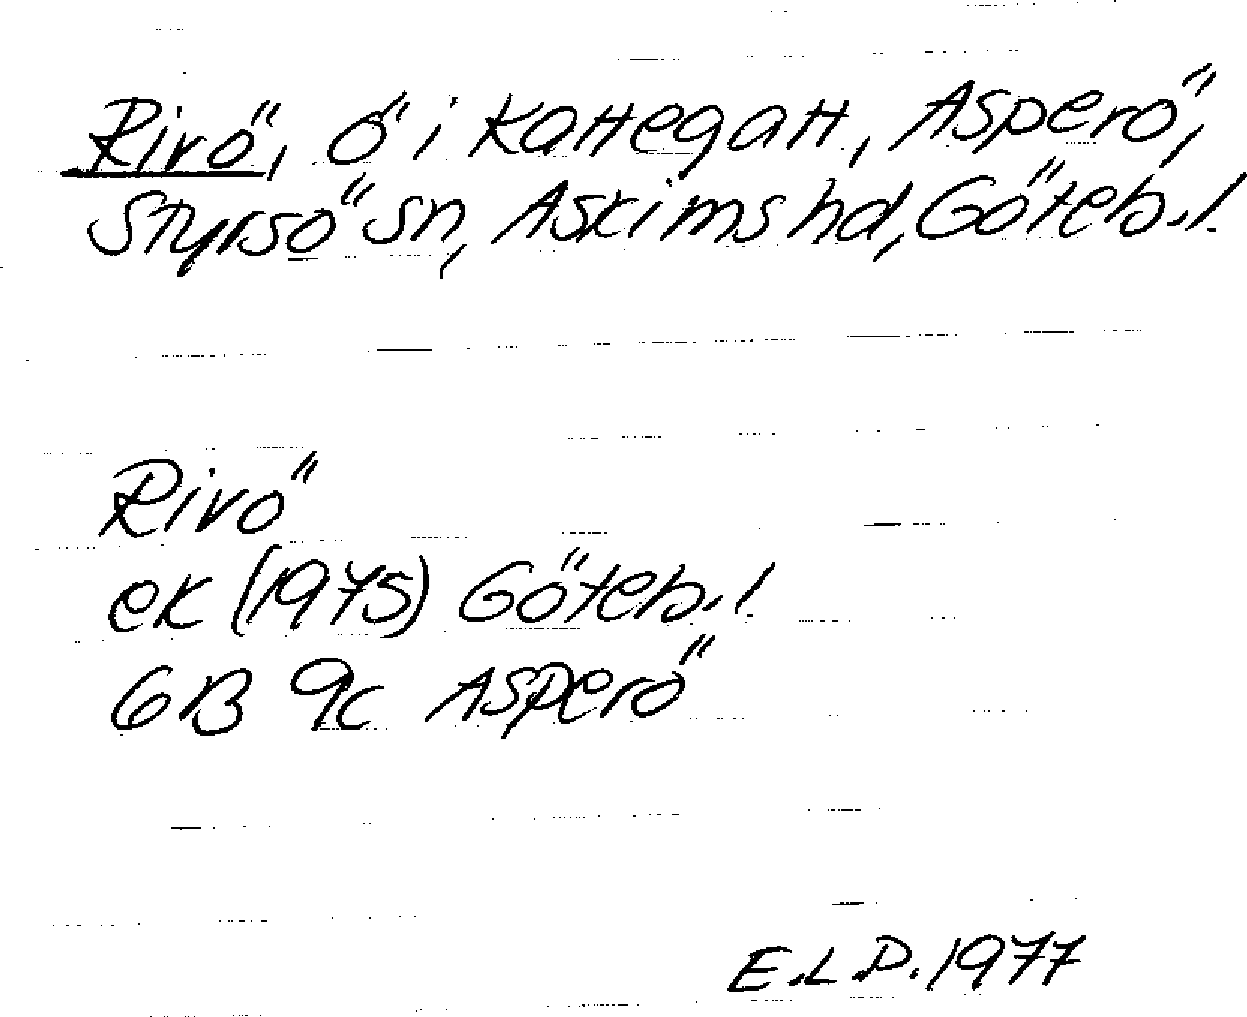 Rivö, ö i Kattegatt, Asperö,
Styrsö sn, Askims hd, Göteb.l.
Rivö
ek (1975) Göteb.l.
6B 9c Asperö
E.L.D. 1977